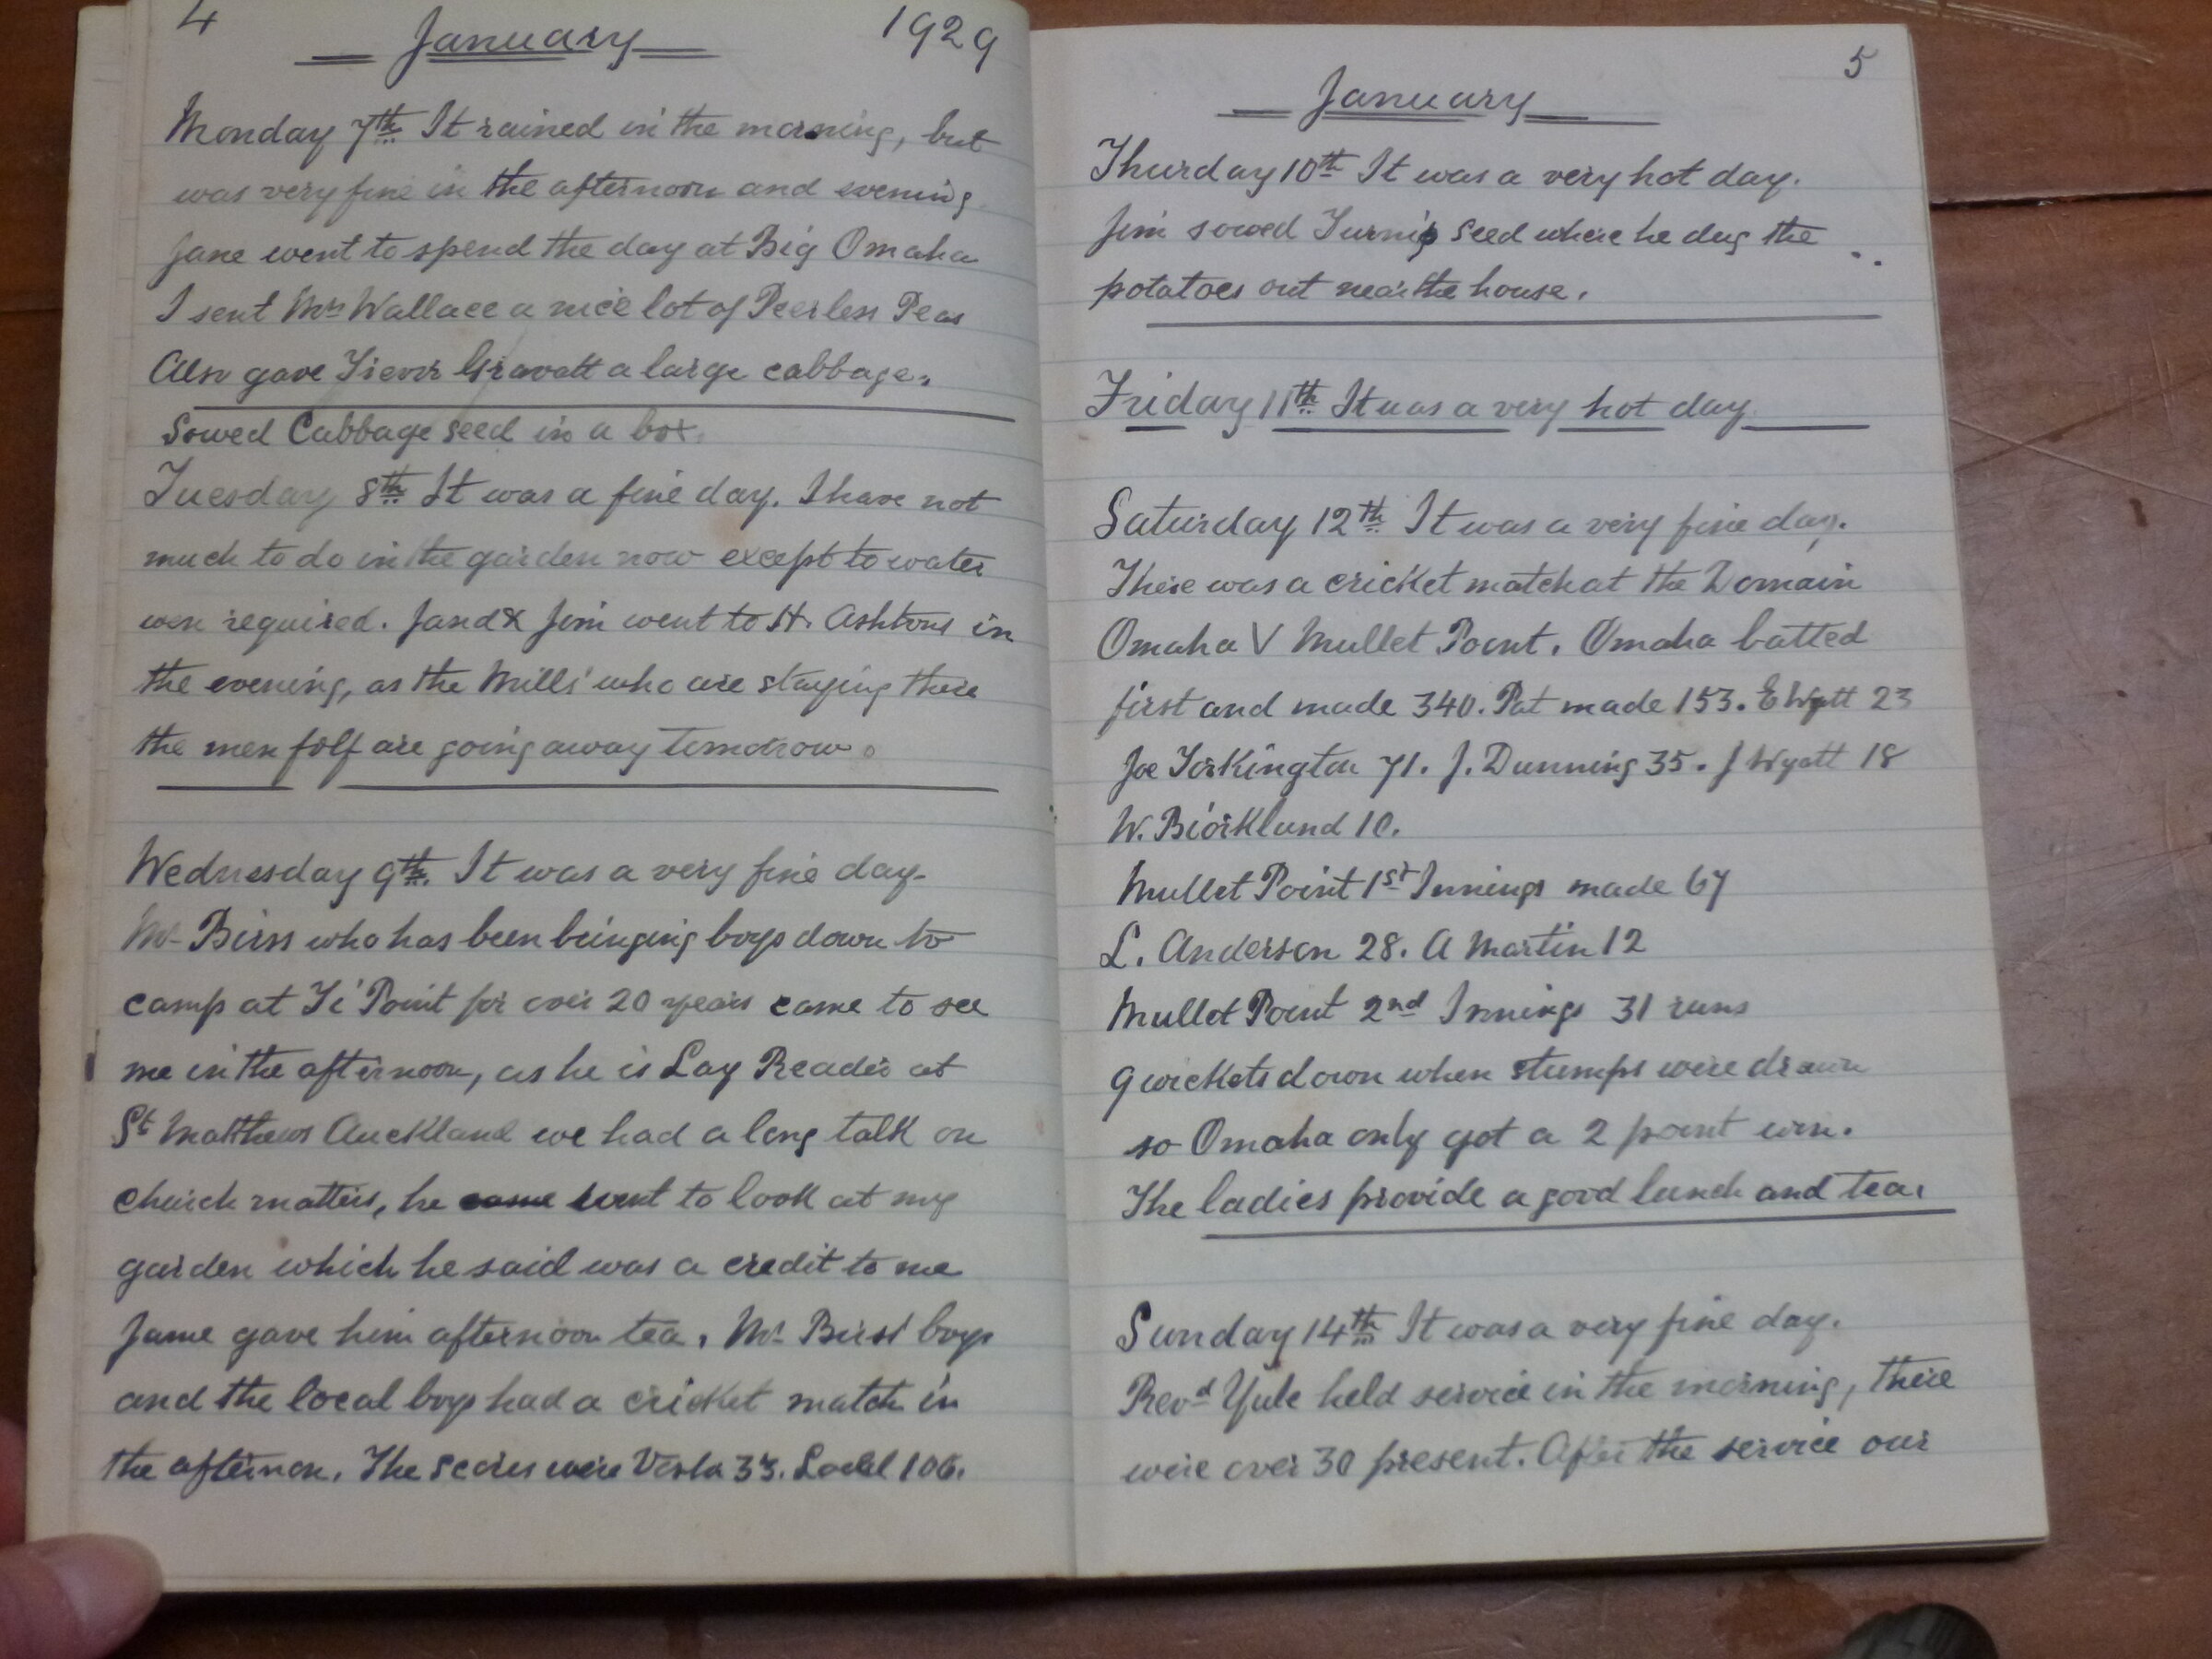 4 January 1929
Monday 7th It rained in the morning, but
was very fine in the afternoon and evening
Jane went to spend the day at Big Omaha
I sent Mrs Wallace a nice lot of Peerless Peas
Also gave Trevor Gravatt a large cabbage.
Sowed Cabbage seed in a box.
Tuesday 8th It was a fine day. I have not
much to do in the garden now except to water
wen required. J and & Jim went to H. Ashtons in
the evening, as the Mills' who are staying there
the men folf are going away tomorrow.
Wednesday 9th. It was a very fine day.
Mr Birss who has been bringing boys down to
camp at Ti Point for over 20 years came to see
me in the afternoon, as he is Lay Reader at
St Matthews Auckland we had a long talk on
church matters, he came went to look at my
garden which he said was a credit to me
Jame gave him afternoon tea. Mr Birss' boys
and the local boys had a cricket match in
the afternon. The scores were 33. Local 106.
5
January
Thurday 10th It was a very hot day.
Jim sowed Turnip seed where he dug the
potatoes out near the house.
Friday 11th It was a very hot day
Saturday 12th It was a very fine day.
There was a cricket match at the Domain
Omaha V Mullet Point. Omaha batted
first and made 340. Pat made 153. E Wyatt 23
Joe Torkington 71. J. Dunning 35. J Wyatt 18
W. Biorklund 10.
Mullet Point 1st Innings made 67
L. Anderson 28. A Martin 12
Mullet Point 2nd Innings 31 runs
9 wickets down when stumps were drawn
so Omaha only got a 2 point win.
The ladies provide a good lunch and tea.
Sunday 14th It was a very fine day.
Revd Yule held service in the morning, there
were over 30 present. After the service our